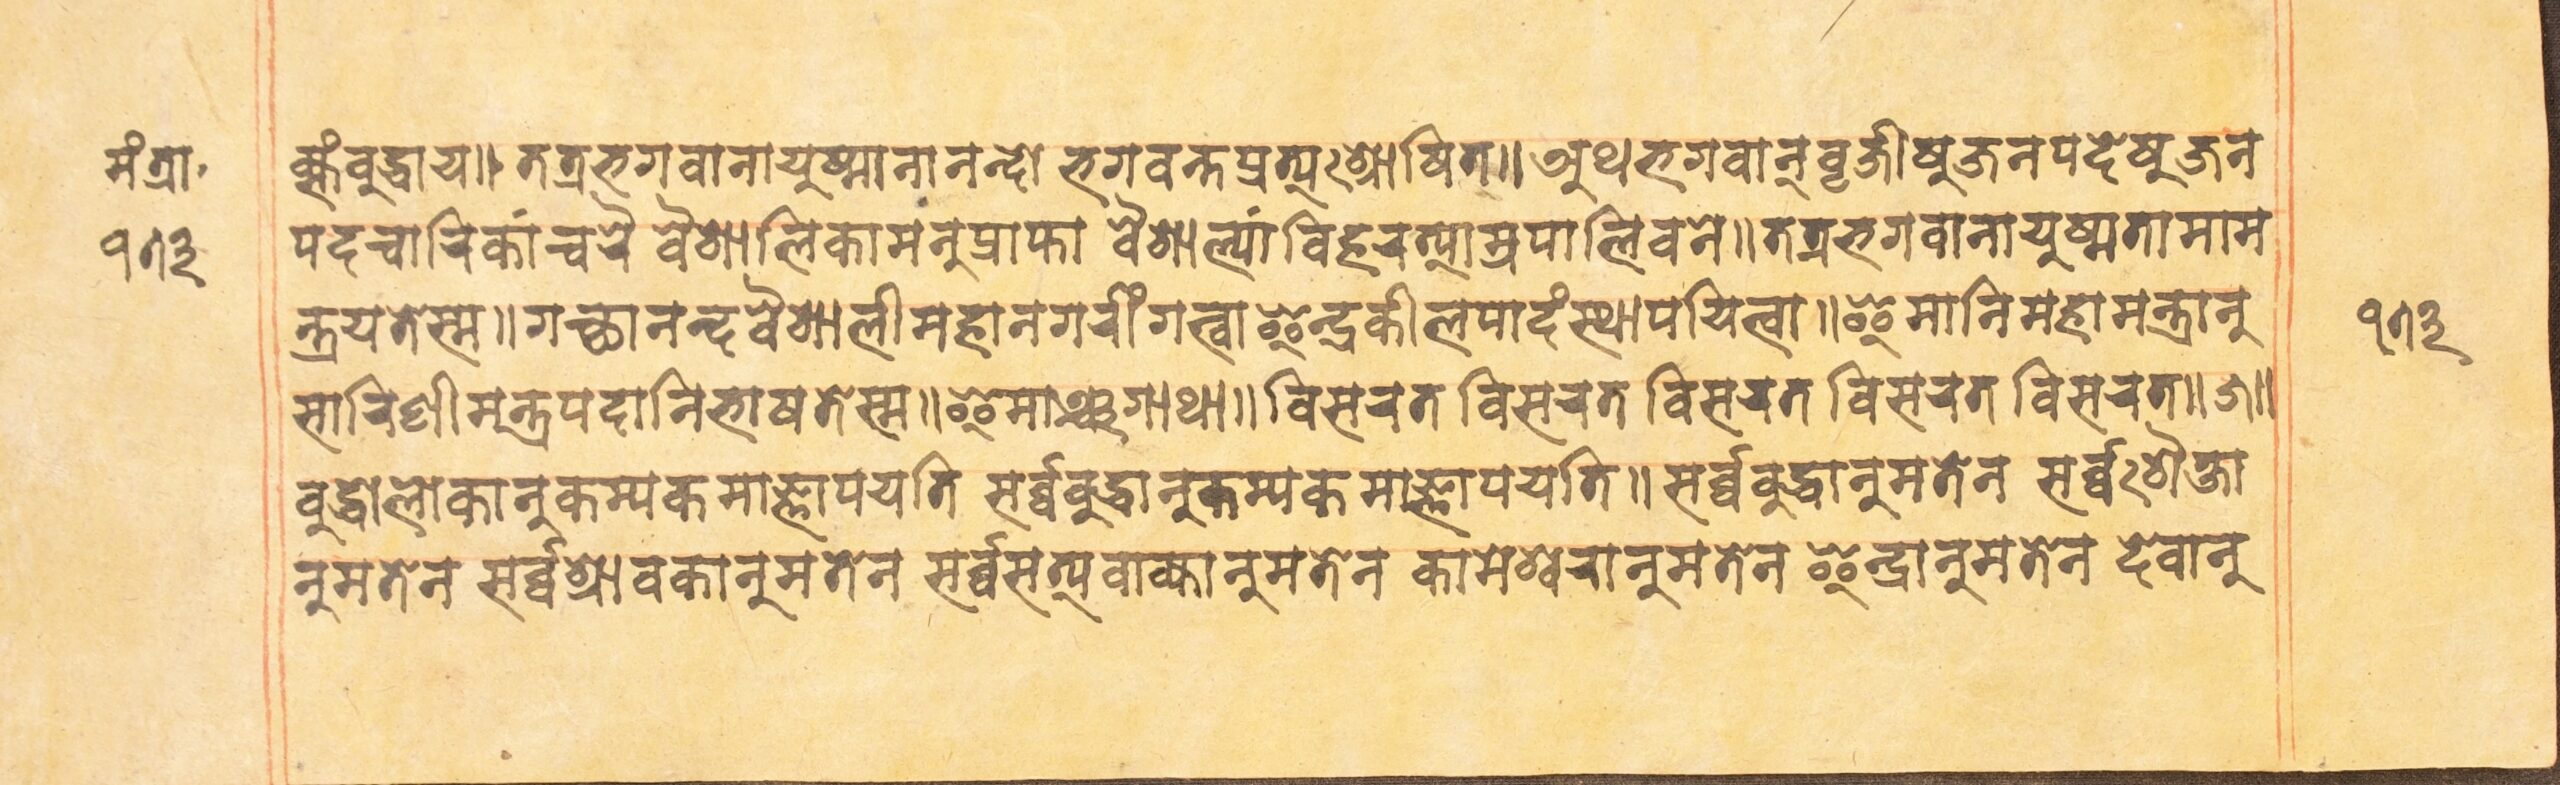 मंत्रा॰
१७३
क्तंबुद्धाय॥ तत्रभगवानायुष्मानानन्दो भगवन्तप्रत्युःश्रोषित्॥ अथभगवान्वृजीषुजनपदेषुजन
पदचारिकांच्चरै वैशालिकामनुप्राप्ता वैशाल्यांविहरत्याम्रपालिवने॥ तत्रभगवानायुष्मतामाम
न्त्रयतेस्म॥ गच्छानन्दवैशालीमहानगरींगत्वाइन्द्रकीलपादंस्थापयित्वा॥ इमानिमहामन्त्रानु
१७३
सारिणीमन्त्रपदानिभाषतेस्म॥ इमाञ्चगाथा॥ विसरत विसरत विसरत विसरत विसरत॥ ७॥
बुद्धोलोकानुकम्पकमाज्ञापयति सर्व्वबुद्धानुकम्पकमाज्ञापयति॥ सर्व्वबुद्धानुमतेन सर्व्वःशैक्षा
नुमतेन सर्व्वश्रावकानुमतेन सर्व्वसत्यवाक्यानुमतेन कामेश्वरानुमतेन इन्द्रानुमतेन देवानु